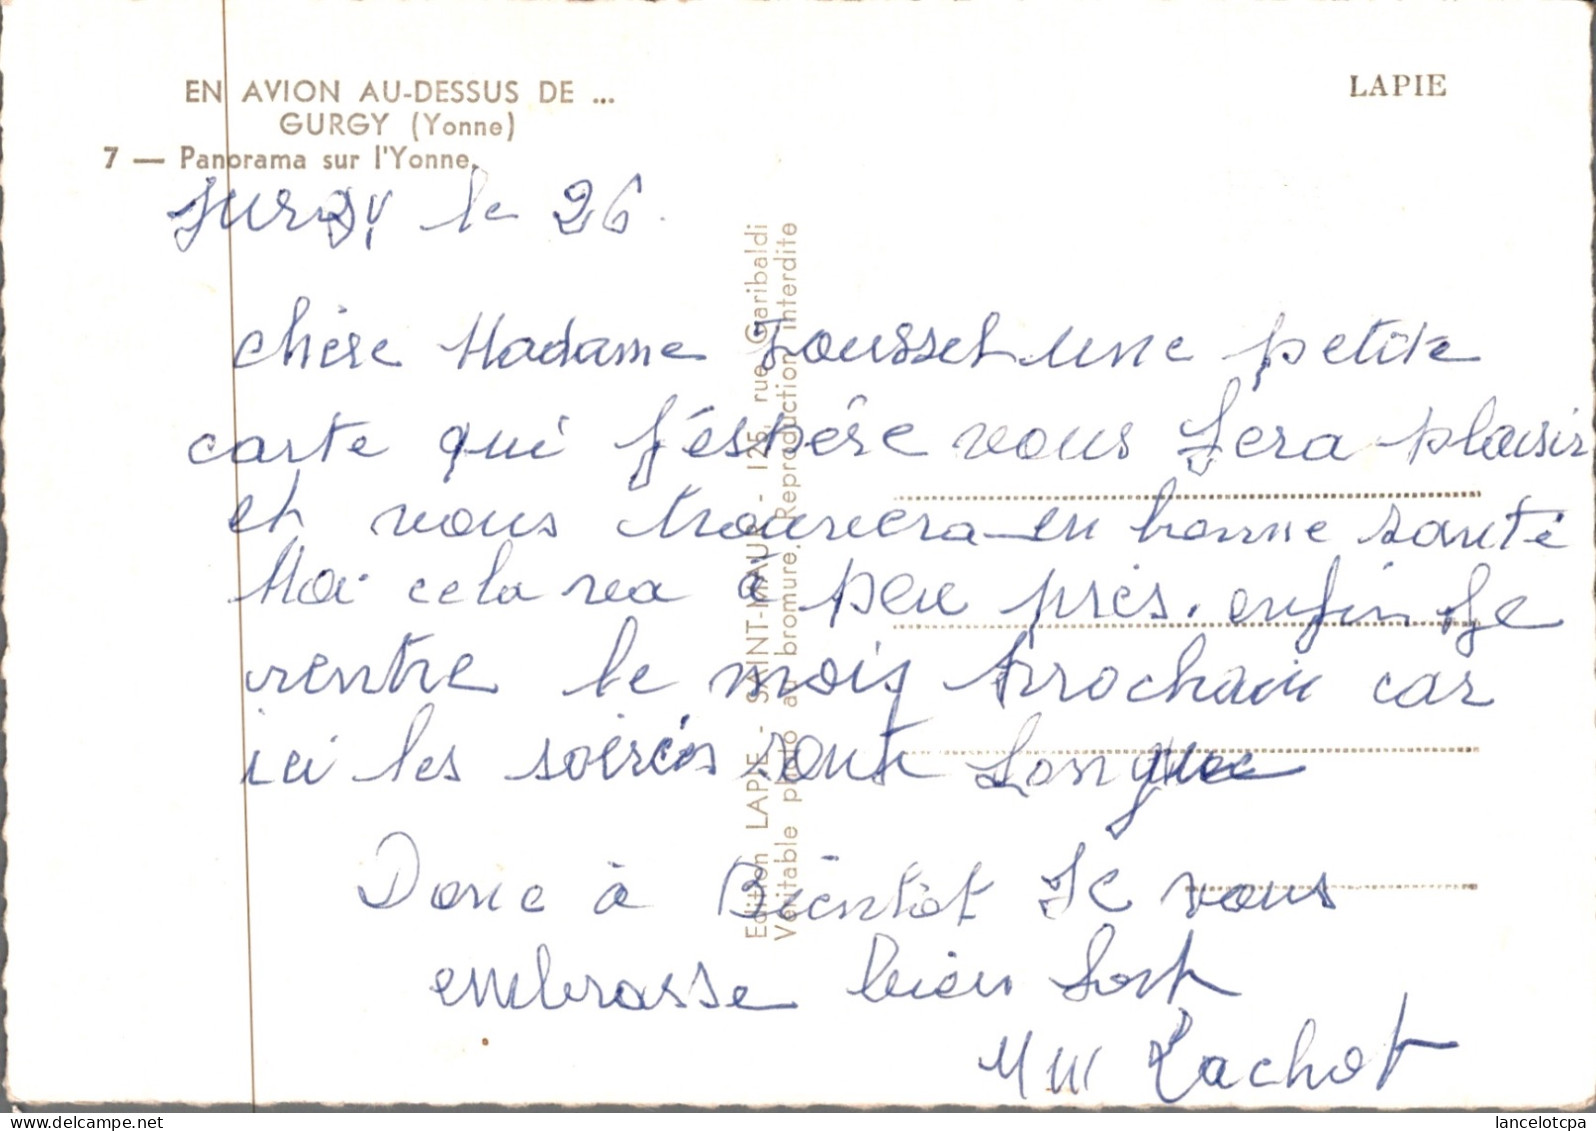 EN AVION AU-DESSUS DE ...
GURGY (Yonne)
7 — Panorama sur l'Yonne.
LAPIE
Gurgy le 26.
Chère Madame Tousset une petite
carte qui j'éspére vous fera plaisir
et vous trouvera en bonne santé
Moi cela va à peu près. enfin Je
rentre le mois prochain car
ici les soirées sont longue
Donc à Bientôt Je vous
embrasse bien fort
Mme Lachot
Edition LAPIE - SAINT-MAUR - 125, rue Garibaldi
Véritable photo au bromure. Reproduction interdite
lancelotcpa